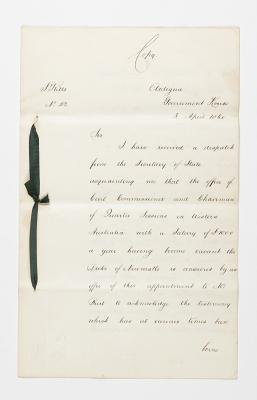 Copy
St Kitts
No 112
Antigua
Government House
5 April 1860
Sir
I have received a despatch
from the Secretary of State
acquainting me that the office of
Civil Commissioner and Chairman
of Quarter Sessions in Western
Australia with a Salary of £1000
a year having become vacant the
Duke of Newcastle is empowered by an
offer of this appointment to Mr
to acknowledge the testimony
which has at various times been
borne